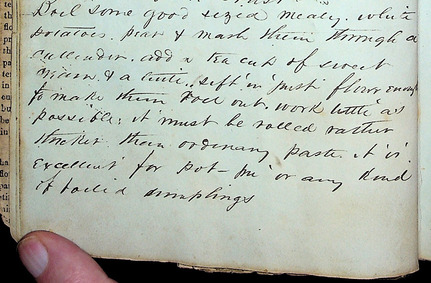 Boil some good sized mealy, white
potatoes. pear & mash them through a
cullender. add a tea cup of sweet
cream & a little sift in just flour enough
to make them roll out, work little as
possible; it must be rolled rather
thicker than ordinary paste. it is
excellent for pot-pie or any kind
of boiled dumplings